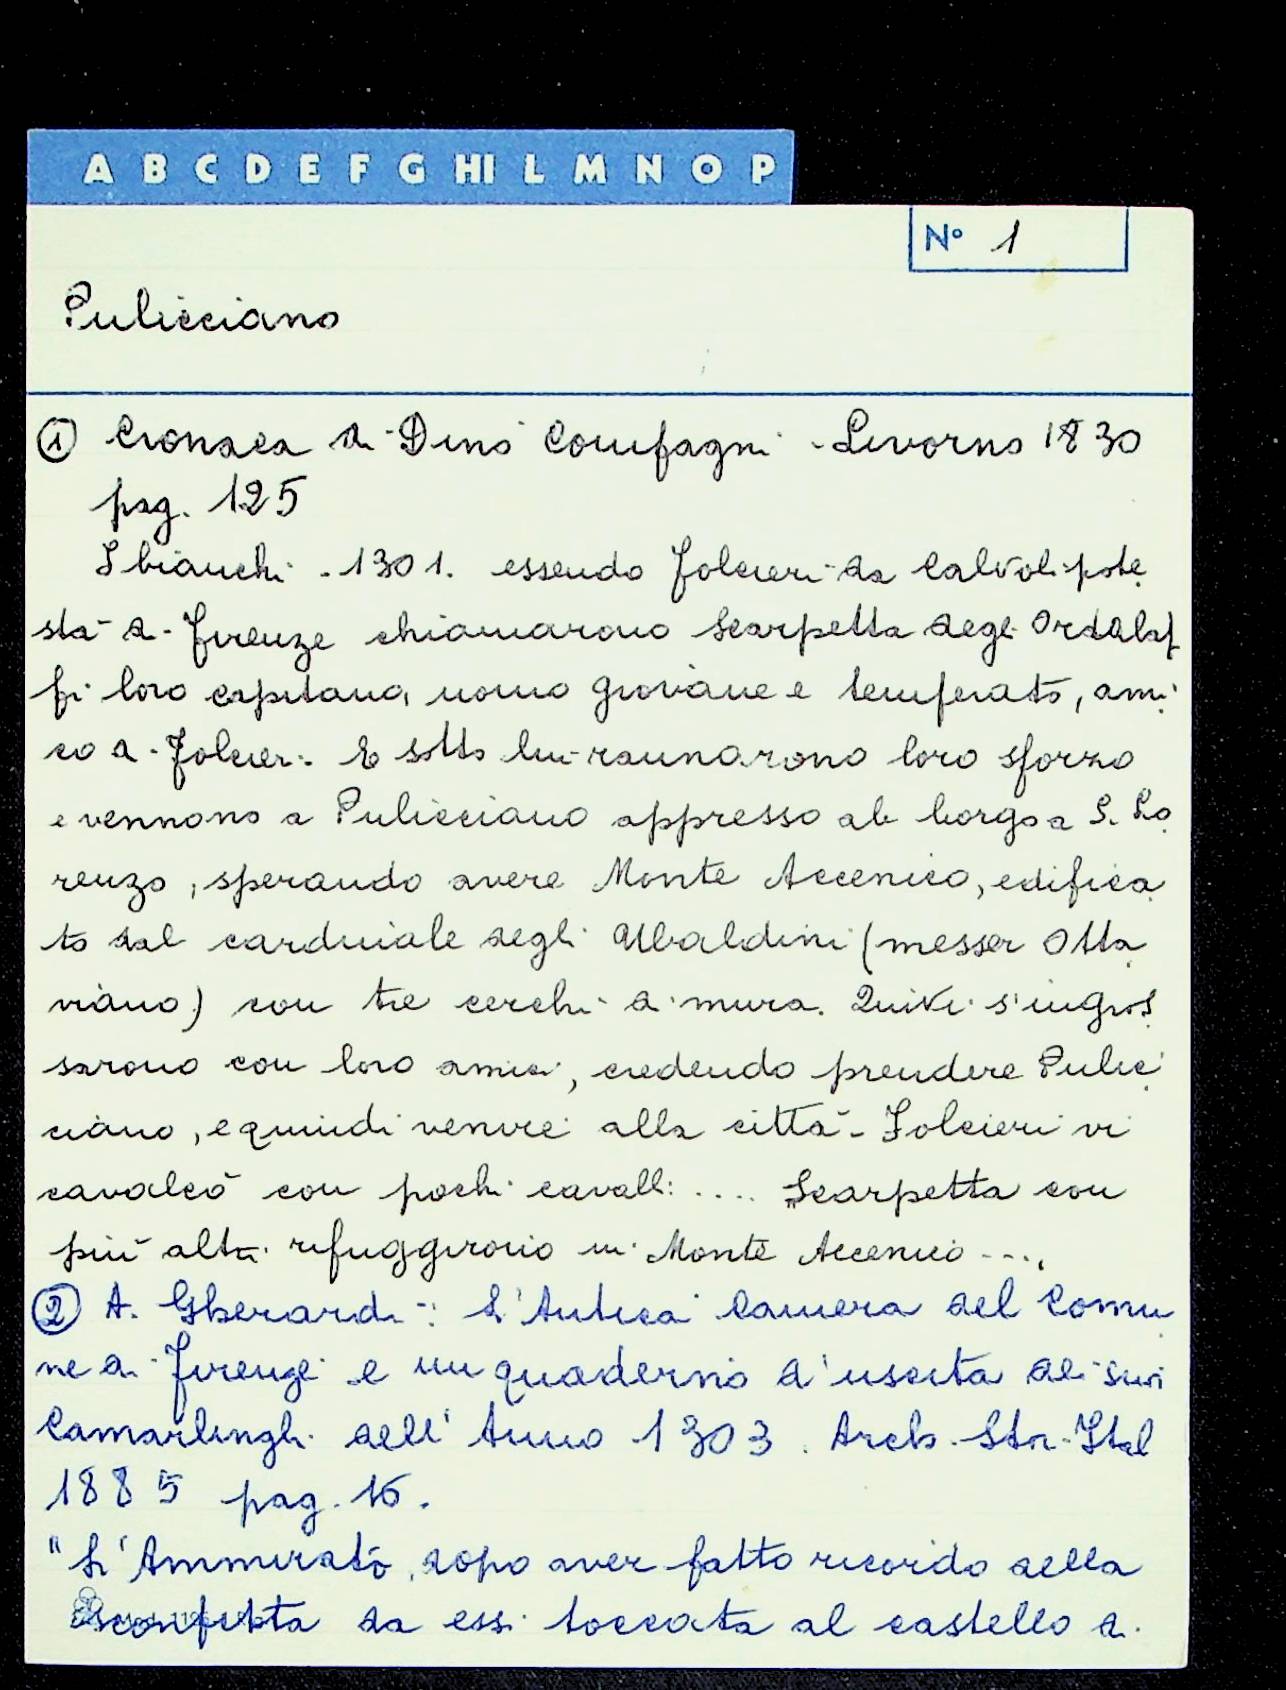 A B C D E F G HI L M N O P
Nº 1
Pulicciano
① Cronaca di Dino Compagni - Livorno 1830
pag. 125
I bianchi - 1301. essendo Folcieri da Calvoli pote
stà di Firenze chiamarono Scarpetta degli Ordalaf
fi loro capitano, uomo giovane e temperato, ami
co di Folcieri. E sotto lui raunarono loro sforzo
e vennono a Pulicciano appresso al borgo a S. Lo
renzo, sperando avere Monte Accenico, edifica
to dal cardinale degli Ubaldini (messer Otta
viano) con tre cerchi di mura. Quivi s'ingros
sarono con loro amici, credendo prendere Pulic
ciano, e quindi venire alla città - Folcieri vi
cavalcò con pochi cavalli .... Scarpetta con
più altri rifuggirono in Monte Accenico ....
② A. Gherardi: L'Antica Camera del Comu
ne di Firenze e un quaderno d'uscita dei suoi
Camarlinghi dell'Anno 1303. Arch. Stor. Ital
1885 pag. 16.
"L'Ammirato, dopo aver fatto ricordo della
sconfitta da essi toccata al castello di